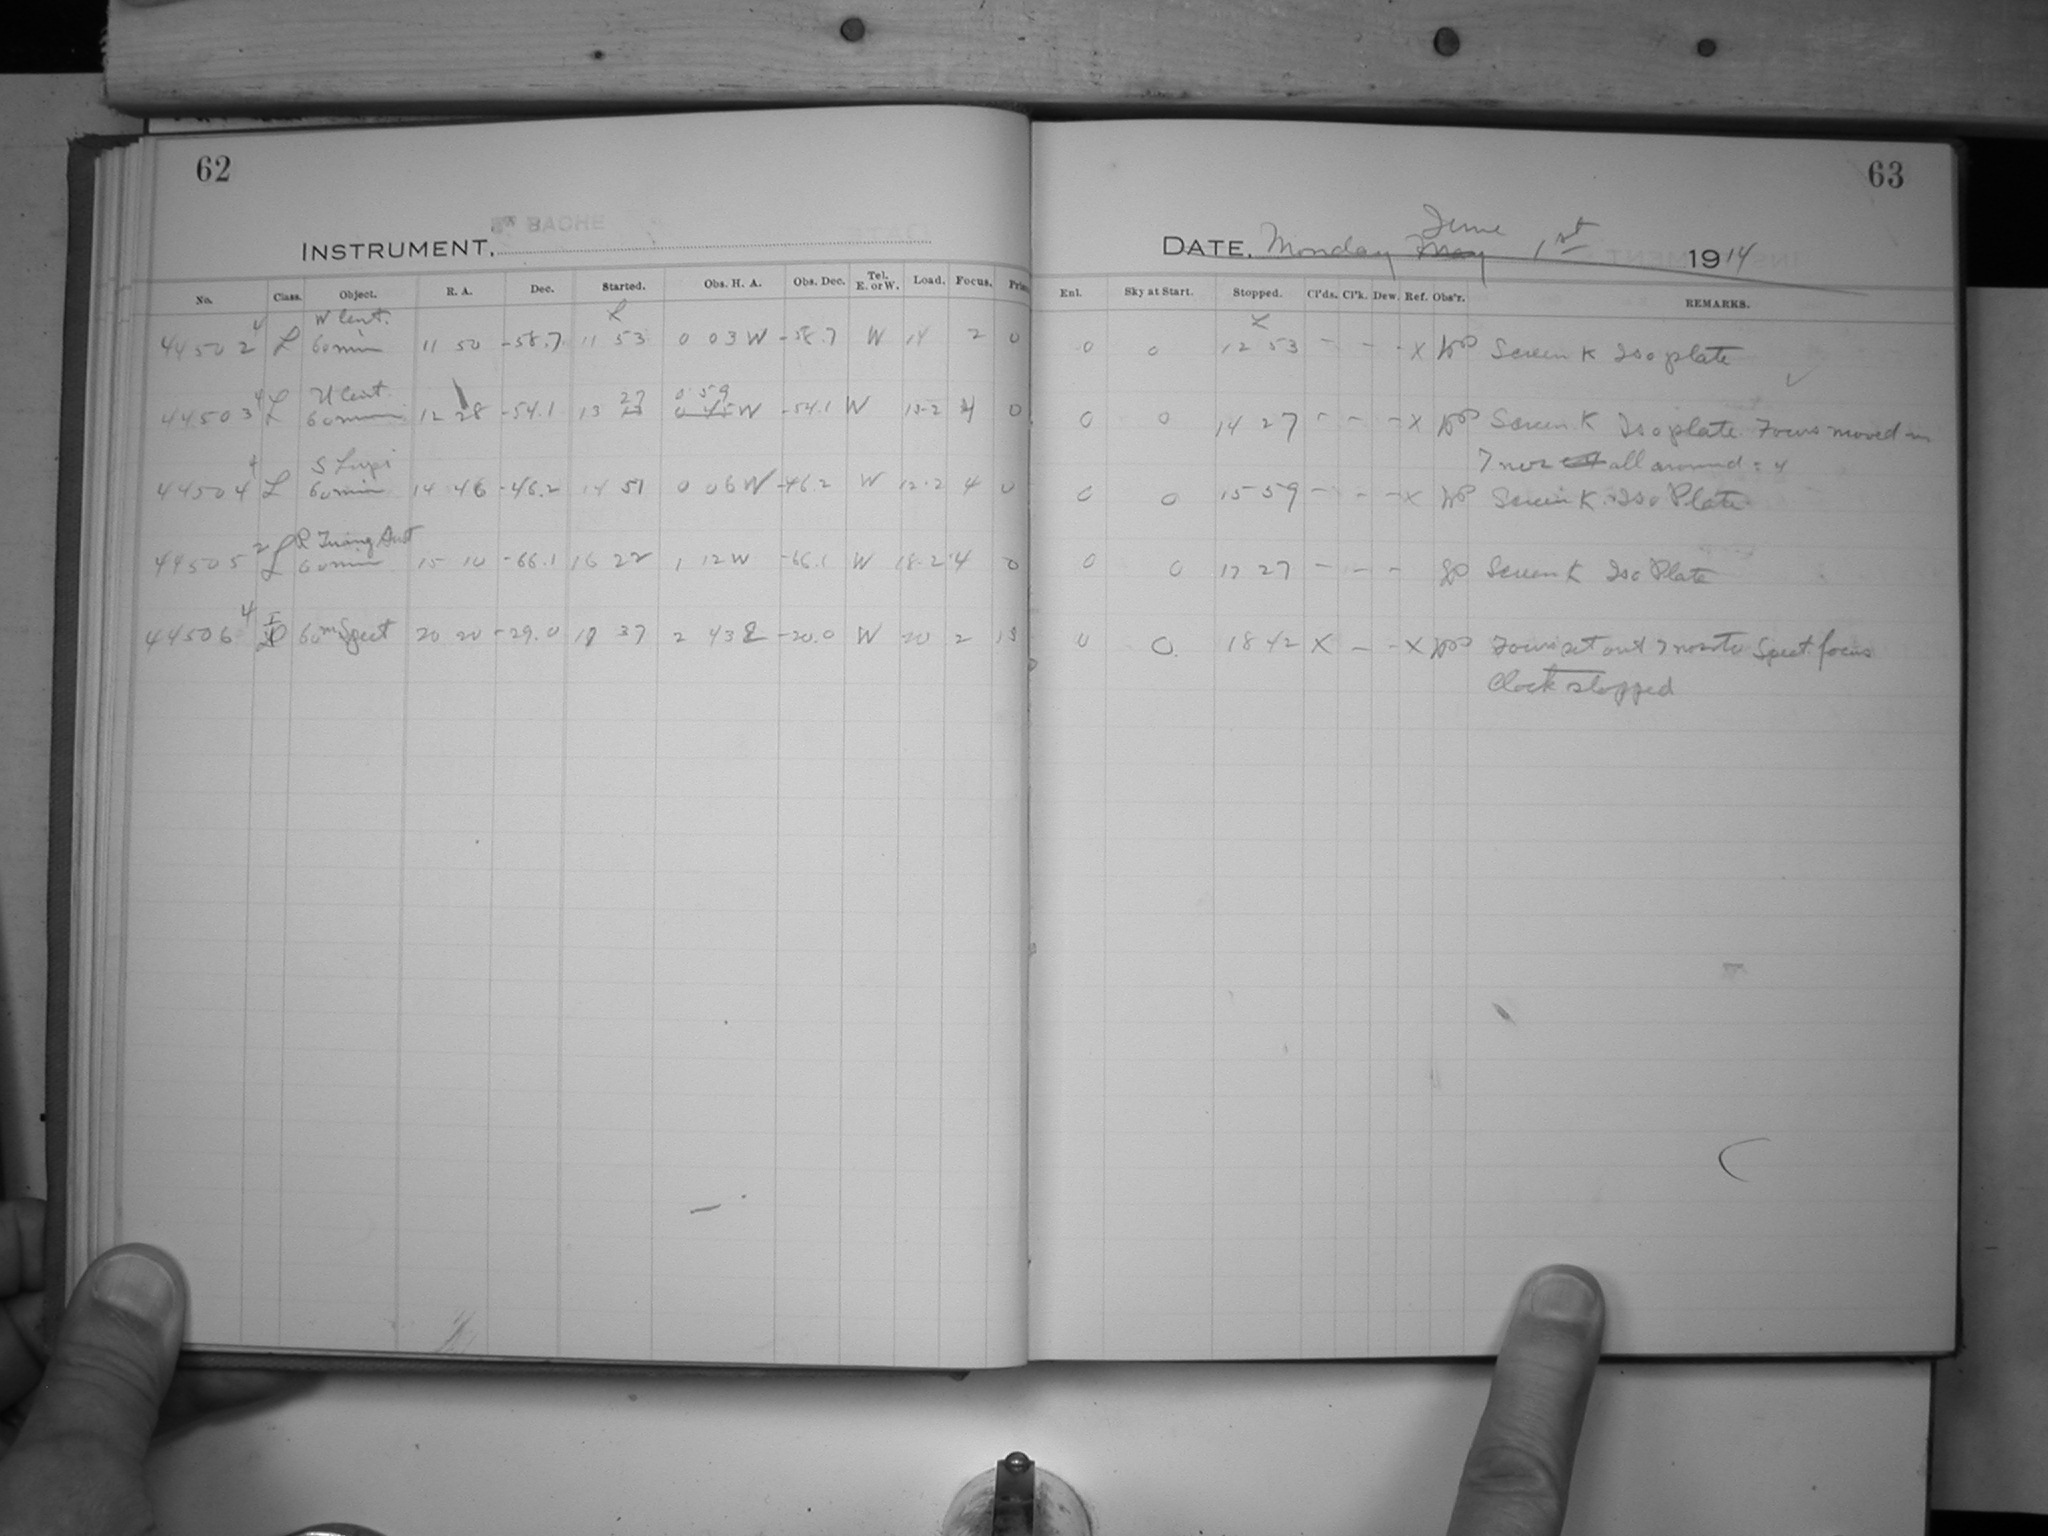 62
BACHE
INSTRUMENT,
No. Class. Object. R. A. Dec. Started. Obs. H. A. Obs. Dec. Tel. E. or W. Load. Focus.
W Cent.
44502 4 L 60 min 11 50 -58.7 11 53 0 03 W -58.7 W 14 2 0
U Cent. 27 0 59
44503 4 L 60 min 12 28 -54.1 13 0 45 W -54.1 W 4 0
S Lupi
44504 4 L 60 min 14 46 -46.2 14 51 0 06 W -46.2 W 12.2 4 0
R Triang Aust
44505 2 L 60 min 15 10 -66.1 16 22 1 12 W -66.1 W 18.2 4 0
44506 4 60m Spect 20 20 -29.0 17 37 2 43 E W 20 2
63
DATE, Monday May June 1st 1914
Enl. Sky at Start. Stopped. Cl'ds. Cl'k. Dew. Ref. Obs'r. REMARKS.
0 0 12 53 - - - X Screen K Iso plate
0 0 14 27 - - - X Screen K Iso plate. Focus moved in
7 all around = 4
0 0 15 59 - - - X Screen K. Iso Plate
0 0 17 27 - - - Screen K Iso Plate
0 0 18 42 X - - X Focus set out 7 Spect. focus
Clock stopped